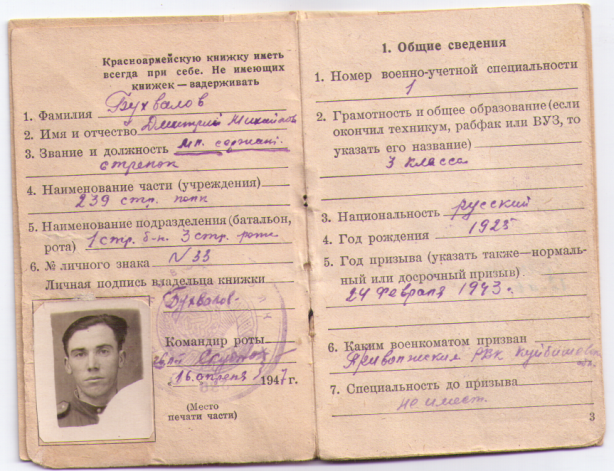 Красноармейскую книжку иметь
всегда при себе. Не имеющих
книжек — задерживать
1. Фамилия Бухвалов
2. Имя и отчество Дмитрий Михайлов
3. Звание и должность мл. сержант.
стрелок
4. Наименование части (учреждения)
239 стр. полк
5. Наименование подразделения (батальон,
рота) 1 стр. б-н. 3 стр. рота
6. № личного знака N 33
Личная подпись владельца книжки
Бухвалов.
Командир роты
16 апреля 1947 г.
(Место
печати части)
1. Общие сведения
1. Номер военно-учетной специальности
1
2. Грамотность и общее образование (если
окончил техникум, рабфак или ВУЗ, то
указать его название)
3 класса
3. Национальность русский
4. Год рождения 1925
5. Год призыва (указать также—нормаль-
ный или досрочный призыв)
24 февраля 1943 г.
6. Каким военкоматом призван
Приволжским РВК Куйбышевск
обл.
7. Специальность до призыва
не имеет.
3